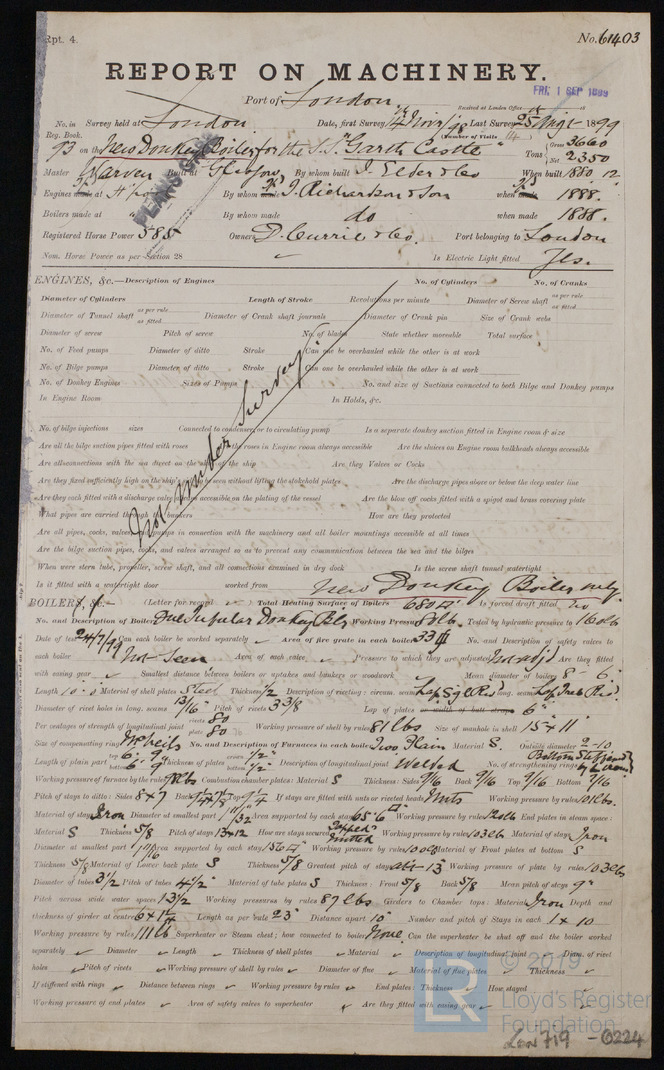 Rpt. 4. No. 61403
REPORT ON MACHINERY.
Port of London
Received at London Office FRI. 1 SEP 1899
No. in Survey held at London Date, first Survey Last Survey 25 Augt 1899
Reg. Book. (Number of Visits 14)
93 on the New Donkey Boiler for the S.S. "Garth Castle" Tons Gross 3660 Net 2350
Master Built at Glasgow By whom built J. Elder & Co When built 1880 12
Engines made at By whom made J. Richardson & Son when made 1888.
Boilers made at By whom made do when made 1888.
Registered Horse Power 585 Owners D. Currie & Co. Port belonging to London
Nom. Horse Power as per Section 28 ✓ Is Electric Light fitted Yes.
ENGINES, &c.—Description of Engines No. of Cylinders No. of Cranks
Diameter of Cylinders Length of Stroke Revolutions per minute Diameter of Screw shaft as per rule as fitted
Diameter of Tunnel shaft as per rule as fitted Diameter of Crank shaft journals Diameter of Crank pin Size of Crank webs
Diameter of screw Pitch of screw No. of blades State whether moveable Total surface
No. of Feed pumps Diameter of ditto Stroke Can one be overhauled while the other is at work
No. of Bilge pumps Diameter of ditto Stroke Can one be overhauled while the other is at work
No. of Donkey Engines Sizes of Pumps No. and size of Suctions connected to both Bilge and Donkey pumps
In Engine Room In Holds, &c.
Not under Survey
No. of bilge injections sizes Connected to condenser, or to circulating pump Is a separate donkey suction fitted in Engine room & size
Are all the bilge suction pipes fitted with roses roses in Engine room always accessible Are the sluices on Engine room bulkheads always accessible
Are all connections with the sea direct on the of the ship Are they Valves or Cocks
Are they fixed sufficiently high on the ship's seen without lifting the stokehold plates Are the discharge pipes above or below the deep water line
Are they each fitted with a discharge valve accessible on the plating of the vessel Are the blow off cocks fitted with a spigot and brass covering plate
What pipes are carried through the bunkers How are they protected
Are all pipes, cocks, valves, pumps in connection with the machinery and all boiler mountings accessible at all times
Are the bilge suction pipes, cocks, and valves arranged so as to prevent any communication between the sea and the bilges
When were stern tube, propeller, screw shaft, and all connections examined in dry dock Is the screw shaft tunnel watertight
Is it fitted with a watertight door worked from New Donkey Boiler only.
BOILERS, &c.— (Letter for record ✓) Total Heating Surface of Boilers 680 □' Is forced draft fitted No
No. and Description of Boilers One Tubular Donkey Blr Working Pressure 80 lb Tested by hydraulic pressure to 160 lb
Date of test 24/7/99 Can each boiler be worked separately ✓ Area of fire grate in each boiler 33 □' No. and Description of safety valves to
each boiler Not Seen Area of each valve ✓ Pressure to which they are adjusted Not adj'd Are they fitted
with easing gear ✓ Smallest distance between boilers or uptakes and bunkers or woodwork ✓ Mean diameter of boilers 8'-6"
Length 10'-0 Material of shell plates Steel Thickness 1/2 Description of riveting: circum. seams Lap Sgle Riv long. seams Lap Treb Riv.
Diameter of rivet holes in long. seams 13/16" Pitch of rivets 3 3/8 Lap of plates or width of butt straps 6"
Per centages of strength of longitudinal joint rivets 80 plate 80 Working pressure of shell by rules 81 lbs Size of manhole in shell 15" x 11"
Size of compensating ring No. and Description of Furnaces in each boiler Two Plain Material S. Outside diameter 2'-10
Length of plain part top 6'-7 bottom 6' Thickness of plates crown 1/2" bottom 1/2" Description of longitudinal joint Welded No. of strengthening rings
Working pressure of furnace by the rules lbs Combustion chamber plates: Material S Thickness: Sides 9/16 Back 9/16 Top 9/16 Bottom 9/16
Pitch of stays to ditto: Sides 8 x 7 Back Top 9 1/4 If stays are fitted with nuts or riveted heads Nuts Working pressure by rules 101 lbs.
Material of stays Iron Diameter at smallest part 1 11/32 Area supported by each stay 65.6 □" Working pressure by rules 120 lb End plates in steam space:
Material S Thickness 5/8 Pitch of stays 13 x 12 How are stays secured Tapped nutted Working pressure by rules 103 lb Material of stays Iron
Diameter at smallest part 1 11/16 Area supported by each stay 156 □" Working pressure by rules 100 lb Material of Front plates at bottom S
Thickness 5/8 Material of Lower back plate S Thickness 5/8 Greatest pitch of stays abt 13" Working pressure of plate by rules 103 lb
Diameter of tubes 3 1/2 Pitch of tubes 4 1/2" Material of tube plates S Thickness: Front 5/8 Back 5/8 Mean pitch of stays 9"
Pitch across wide water spaces 13 1/2 Working pressures by rules 87 lbs Girders to Chamber tops: Material Iron Depth and
thickness of girder at centre Length as per rule 23" Distance apart 10" Number and pitch of Stays in each 1 x 10
Working pressure by rules 111 lb Superheater or Steam chest; how connected to boiler None Can the superheater be shut off and the boiler worked
separately ✓ Diameter ✓ Length ✓ Thickness of shell plates ✓ Material ✓ Description of longitudinal joint ✓ Diam. of rivet
holes ✓ Pitch of rivets ✓ Working pressure of shell by rules ✓ Diameter of flue ✓ Material of flue plates ✓ Thickness ✓
If stiffened with rings ✓ Distance between rings ✓ Working pressure by rules ✓ End plates: Thickness ✓ How stayed ✓
Working pressure of end plates ✓ Area of safety valves to superheater ✓ Are they fitted with easing gear ✓
© 2019
LR Lloyd's Register
Foundation
Lon 719 - 0224